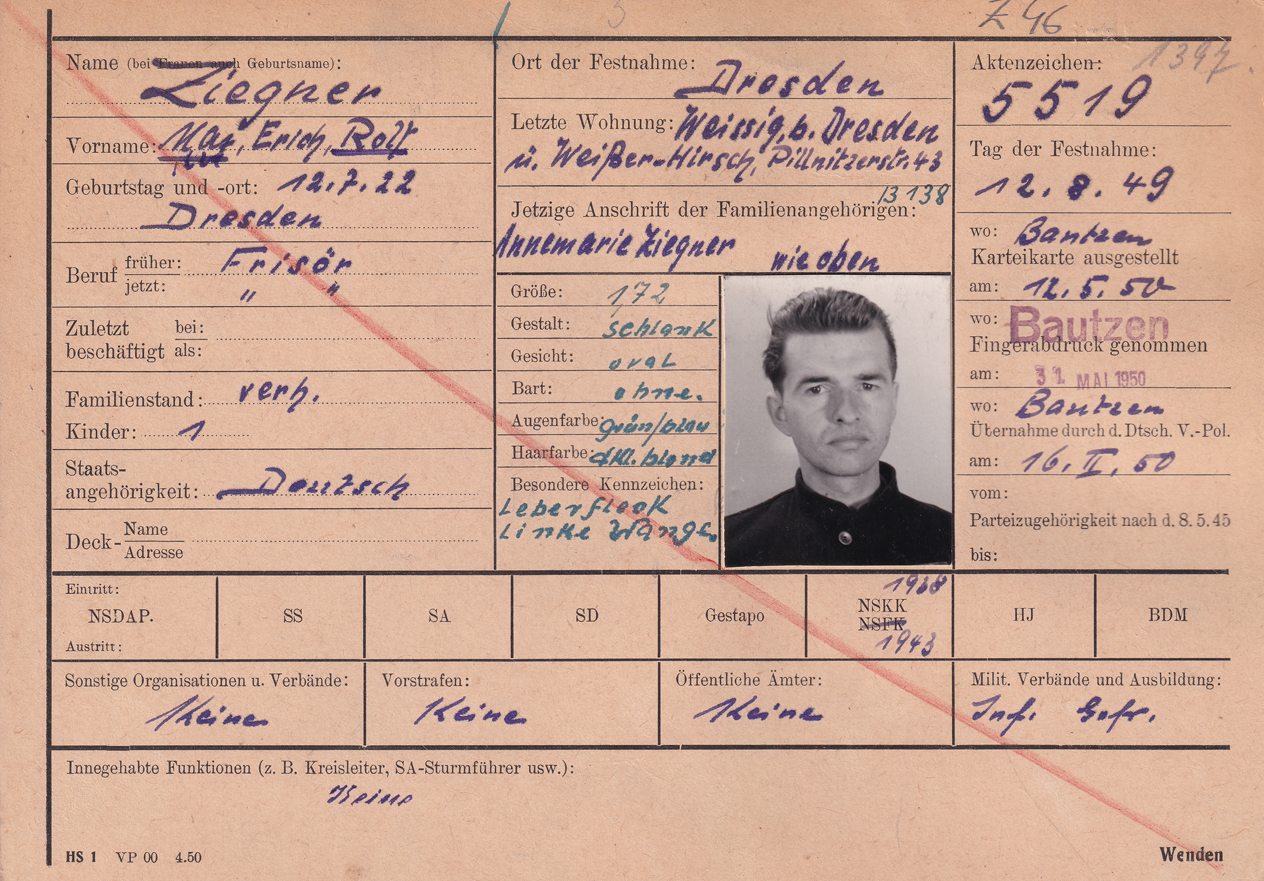 Z 46
1397.
Name (bei Frauen auch Geburtsname):
Ziegner
Vorname: Max, Erich, Rolf
Geburtstag und -ort: 12.7.22
Dresden
Beruf früher: Frisör
jetzt: " "
Zuletzt beschäftigt bei:
als:
Familienstand: verh.
Kinder: 1
Staats-
angehörigkeit: Deutsch
Deck- Name
Adresse
Ort der Festnahme: Dresden
Letzte Wohnung: Weissig, b. Dresden
u. Weißer-Hirsch, Pillnitzerstr. 43
B 138
Jetzige Anschrift der Familienangehörigen:
Annemarie Ziegner wie oben
Größe: 172
Gestalt: schlank
Gesicht: oval
Bart: ohne.
Augenfarbe: grün/blau
Haarfarbe: dkl. blond
Besondere Kennzeichen:
Leberfleck
Linke Wange
Aktenzeichen:
5519
Tag der Festnahme:
12.8.49
wo: Bautzen
Karteikarte ausgestellt
am: 12.5.50
wo: Bautzen
Fingerabdruck genommen
am: 31. MAI 1950
wo: Bautzen
Übernahme durch d. Dtsch. V.-Pol.
am: 16.II.50
vom:
Parteizugehörigkeit nach d. 8.5.45
bis:
Eintritt: 1938
NSDAP. SS SA SD Gestapo NSKK HJ BDM
NSFK
Austritt: 1943
Sonstige Organisationen u. Verbände: Vorstrafen: Öffentliche Ämter: Milit. Verbände und Ausbildung:
Keine Keine Keine Inf. Gefr.
Innegehabte Funktionen (z. B. Kreisleiter, SA-Sturmführer usw.):
Keine
HS 1 VP 00 4.50
Wenden